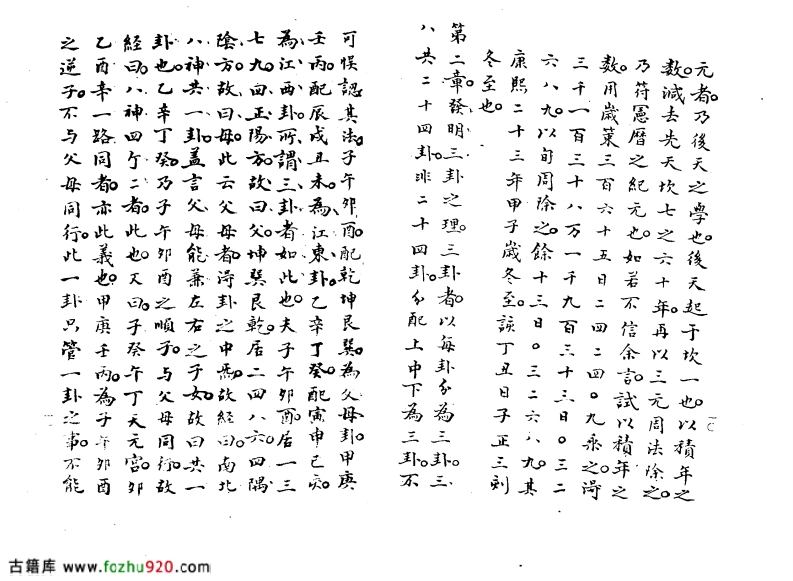 元者。乃後天之學也。後天起于坎一也。以積年之
數。減去先天坎七之六十年。再以三元周法除之。
乃符憲曆之紀元也。如若不信余言。試以積年之
數。用歲策三百六十五日二四二四。九乘之。淂
三千一百三十八万一千九百三十三日。〇三二
六八九。以旬周除之。餘十三日。〇三二六八九。其
康熙二十三年甲子歲冬至。該丁丑日子正三刻
冬至也。
第二章。發明三卦之理。三卦者。以每卦分為三卦。三
八共二十四卦。非二十四卦。分配上中下為三卦。不
可悮認其法。子午卯酉。配乾坤艮巽。為父母卦。甲庚
壬丙。配辰戌丑未。為江東卦。乙辛丁癸。配寅申巳亥。
為江西卦。所謂三卦者如此也。夫子午卯酉。居一三
七九。四正陽方。故曰父。坤巽艮乾。居二四八六。四隅
陰方。故曰母。此云父母者。淂卦之中氣。故經曰。南北
八神共一卦。蓋言父母能兼左右之子女。故曰共一
卦也。乙辛丁癸。乃子午卯酉之順子。与父母同行。故
經曰。八神四个二者。此也。又曰。子癸午丁天元宮。卯
乙酉辛一路同者。亦此義也。甲庚壬丙。為子午卯酉
之逆子。不与父母同行。此一卦只管一卦之事。不能
古籍库 www.fozhu920.com